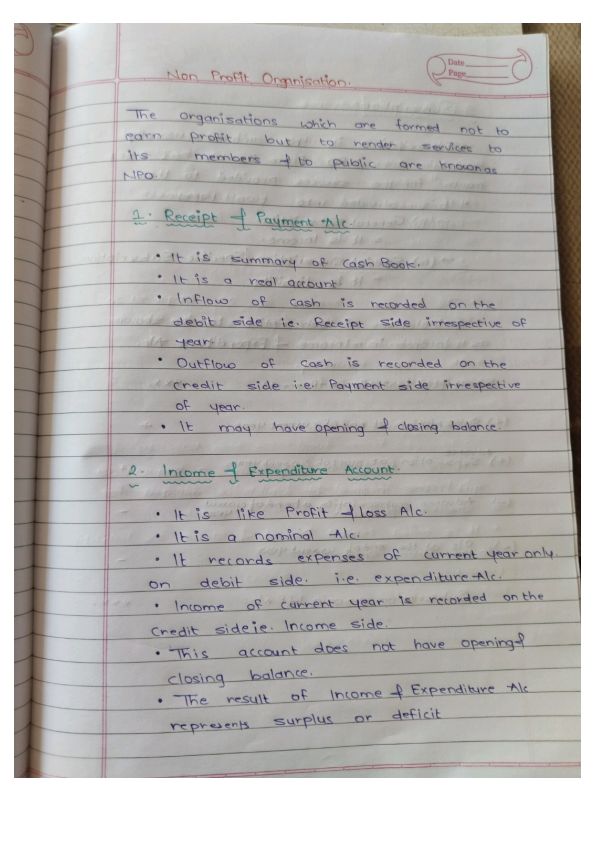 Date
Page
Non Profit Organisation.
The organisations which are formed not to
earn profit but to render services to
its members & to public are known as
NPO.
1. Receipt & Payment A/c.
• It is summary of Cash Book.
• It is a real account
• Inflow of cash is recorded on the
debit side ie. Receipt side irrespective of
year.
• Outflow of cash is recorded on the
credit side i.e. Payment side irrespective
of year.
• It may have opening & closing balance.
2. Income & Expenditure Account.
• It is like Profit & Loss A/c.
• It is a nominal A/c.
• It records expenses of current year only
on debit side. i.e. expenditure A/c.
• Income of current year is recorded on the
Credit side ie. Income side.
• This account does not have opening &
closing balance.
• The result of Income & Expenditure A/c
represents surplus or deficit